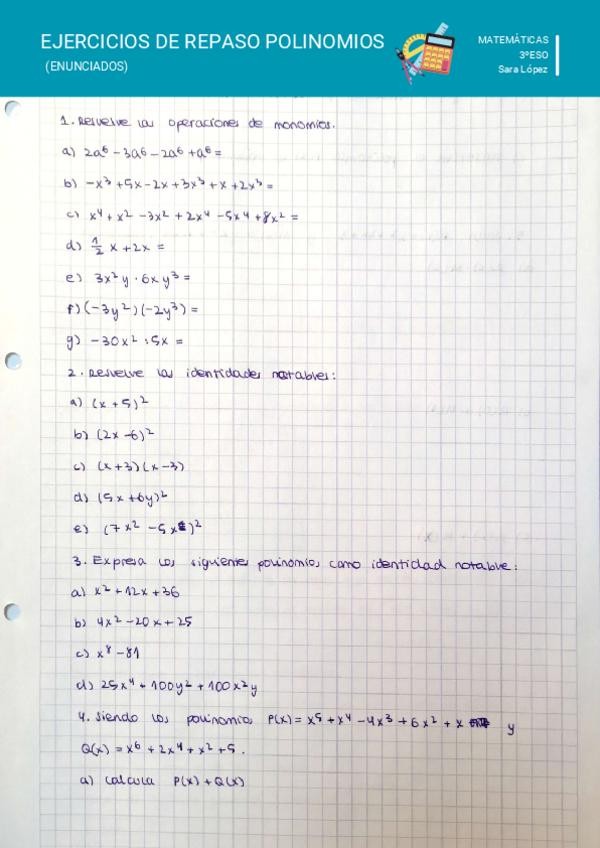 EJERCICIOS DE REPASO POLINOMIOS
(ENUNCIADOS)
MATEMÁTICAS
3ºESO
Sara López
1. Resuelve las operaciones de monomios.
a) 2a⁶ - 3a⁶ - 2a⁶ + a⁶ =
b) -x³ + 5x - 2x + 3x³ + x + 2x³ =
c) x⁴ + x² - 3x² + 2x⁴ - 5x⁴ + 8x² =
d) 1/2 x + 2x =
e) 3x²y · 6xy³ =
f) (-3y²)(-2y³) =
g) -30x² : 5x =
2. Resuelve las identidades notables:
a) (x + 5)²
b) (2x - 6)²
c) (x + 3)(x - 3)
d) (5x + 6y)²
e) (7x² - 5x)²
3. Expresa los siguientes polinomios como identidad notable:
a) x² + 12x + 36
b) 4x² - 20x + 25
c) x⁸ - 81
d) 25x⁴ + 100y² + 100x²y
4. Siendo los polinomios P(x) = x⁵ + x⁴ - 4x³ + 6x² + x y
Q(x) = x⁶ + 2x⁴ + x² + 5.
a) Calcula P(x) + Q(x)